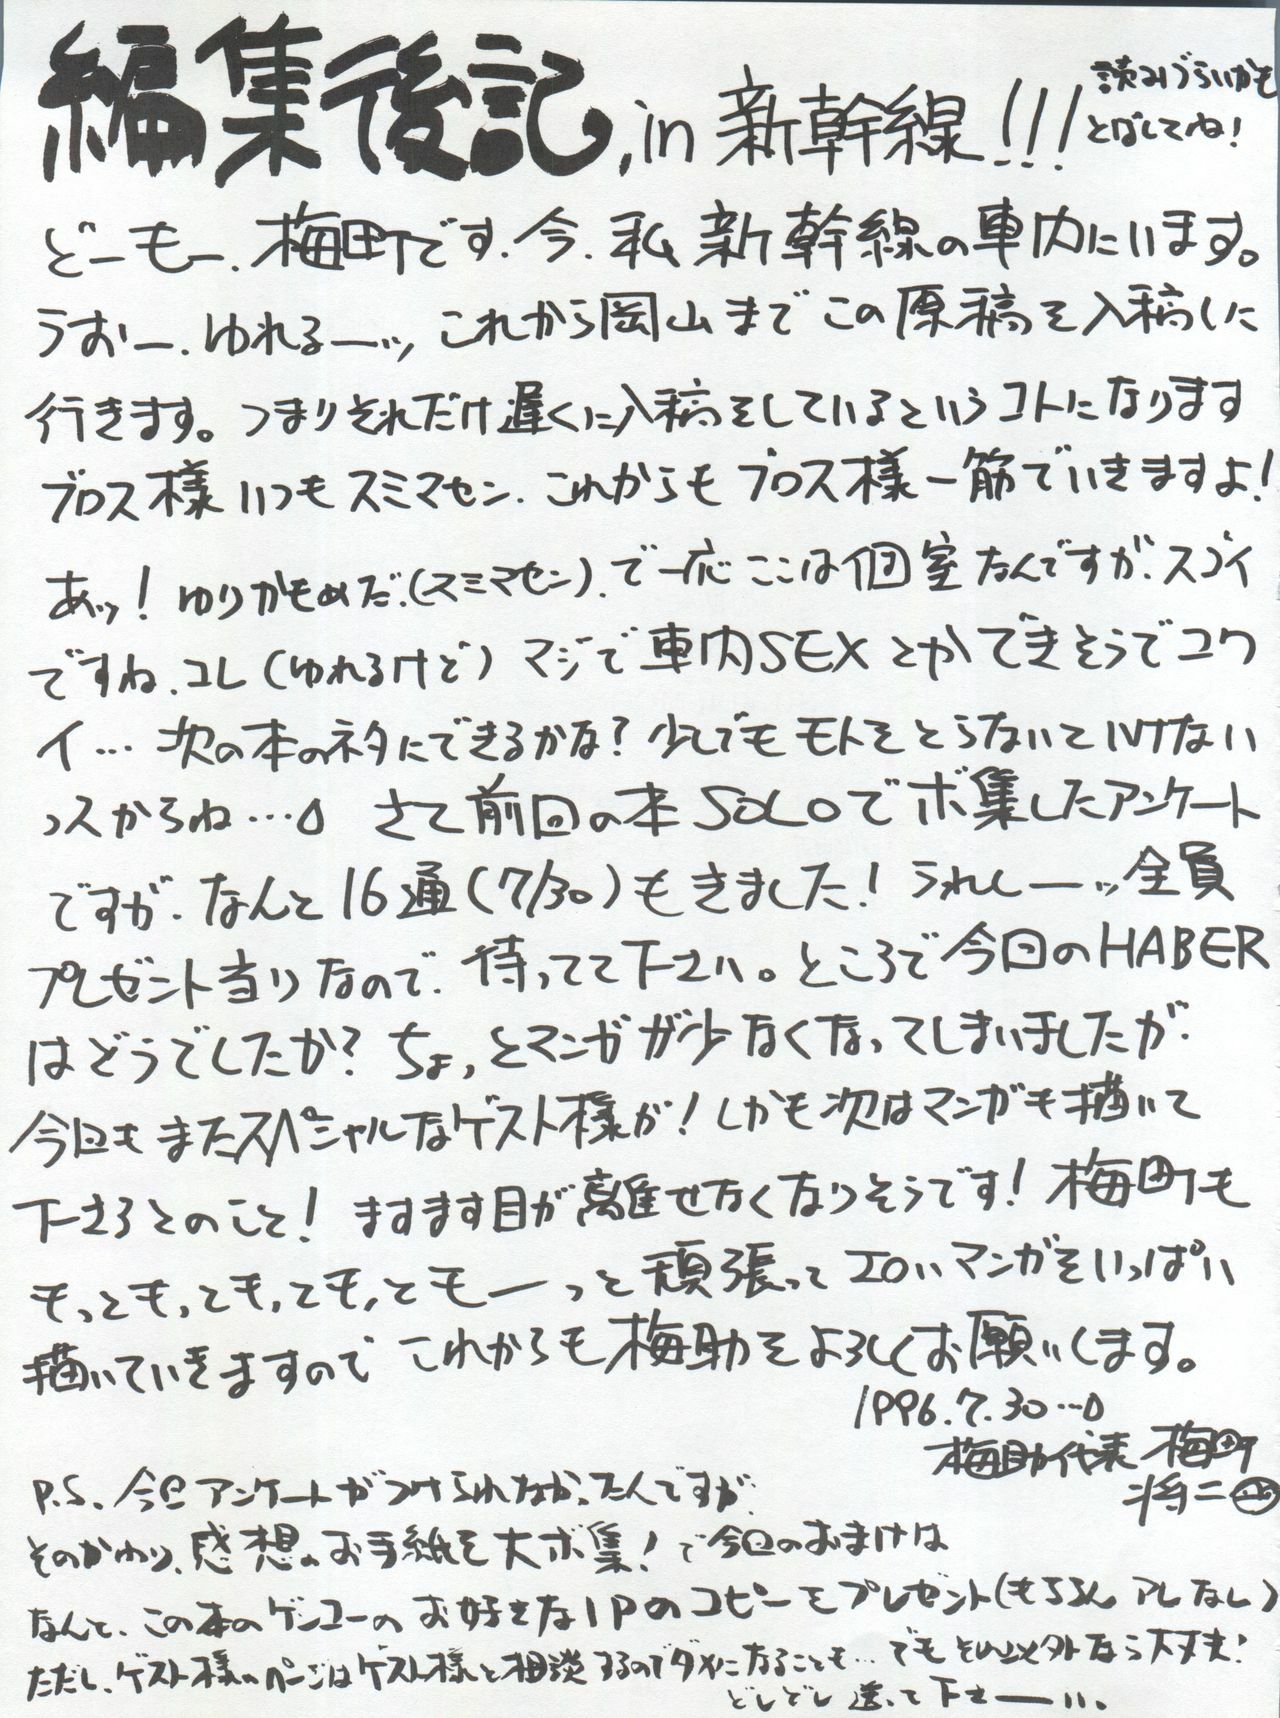 編集後記, in 新幹線!!! 読みづらいかも
とばしてね!
どーもー、梅町です。今、私 新幹線の車内にいます。
うおー、ゆれるーッ これから岡山まで この原稿を入稿しに
行きます。つまりそれだけ遅くに入稿をしているというコトになります
ブロス様 いつもスミマセン、これからも ブロス様一筋でいきますよ!
あッ! ゆりかもめだ、(スミマセン)、で一応ここは個室なんですが、スゴイ
ですね、コレ(ゆれるけど)マジで車内SEXとかできそうでコワ
イ… 次の本のネタにできるかな? 少しでもモトをとらないといけない
っスからね… さて前回の本SOLOでボ集したアンケート
ですが、なんと16通(7/30)もきました! うれしーッ 全員
プレゼント当りなので、待ってて下さい。ところで今回のHABER
はどうでしたか? ちょっとマンガが少なくなってしまいましたが、
今回もまたスペシャルなゲスト様が! しかも次はマンガも描いて
下さるとのこと! ますます目が離せなくなりそうです! 梅町も
もっともっともっともっともーっと頑張ってエロいマンガをいっぱい
描いていきますので これからも梅助をよろしくお願いします。
1996.7.30…
梅助代表 梅町
将二
P.S. 今回アンケートがつけられなかったんですが、
そのかわり、感想のお手紙を大ボ集! で今回のおまけは
なんと、この本のゲンコーのお好きな1Pのコピーをプレゼント(もちろんアレなし)
ただし、ゲスト様のページはゲスト様と相談するのでダメになることも… でもそれ以外なら大丈夫!
どしどし送って下さーい。